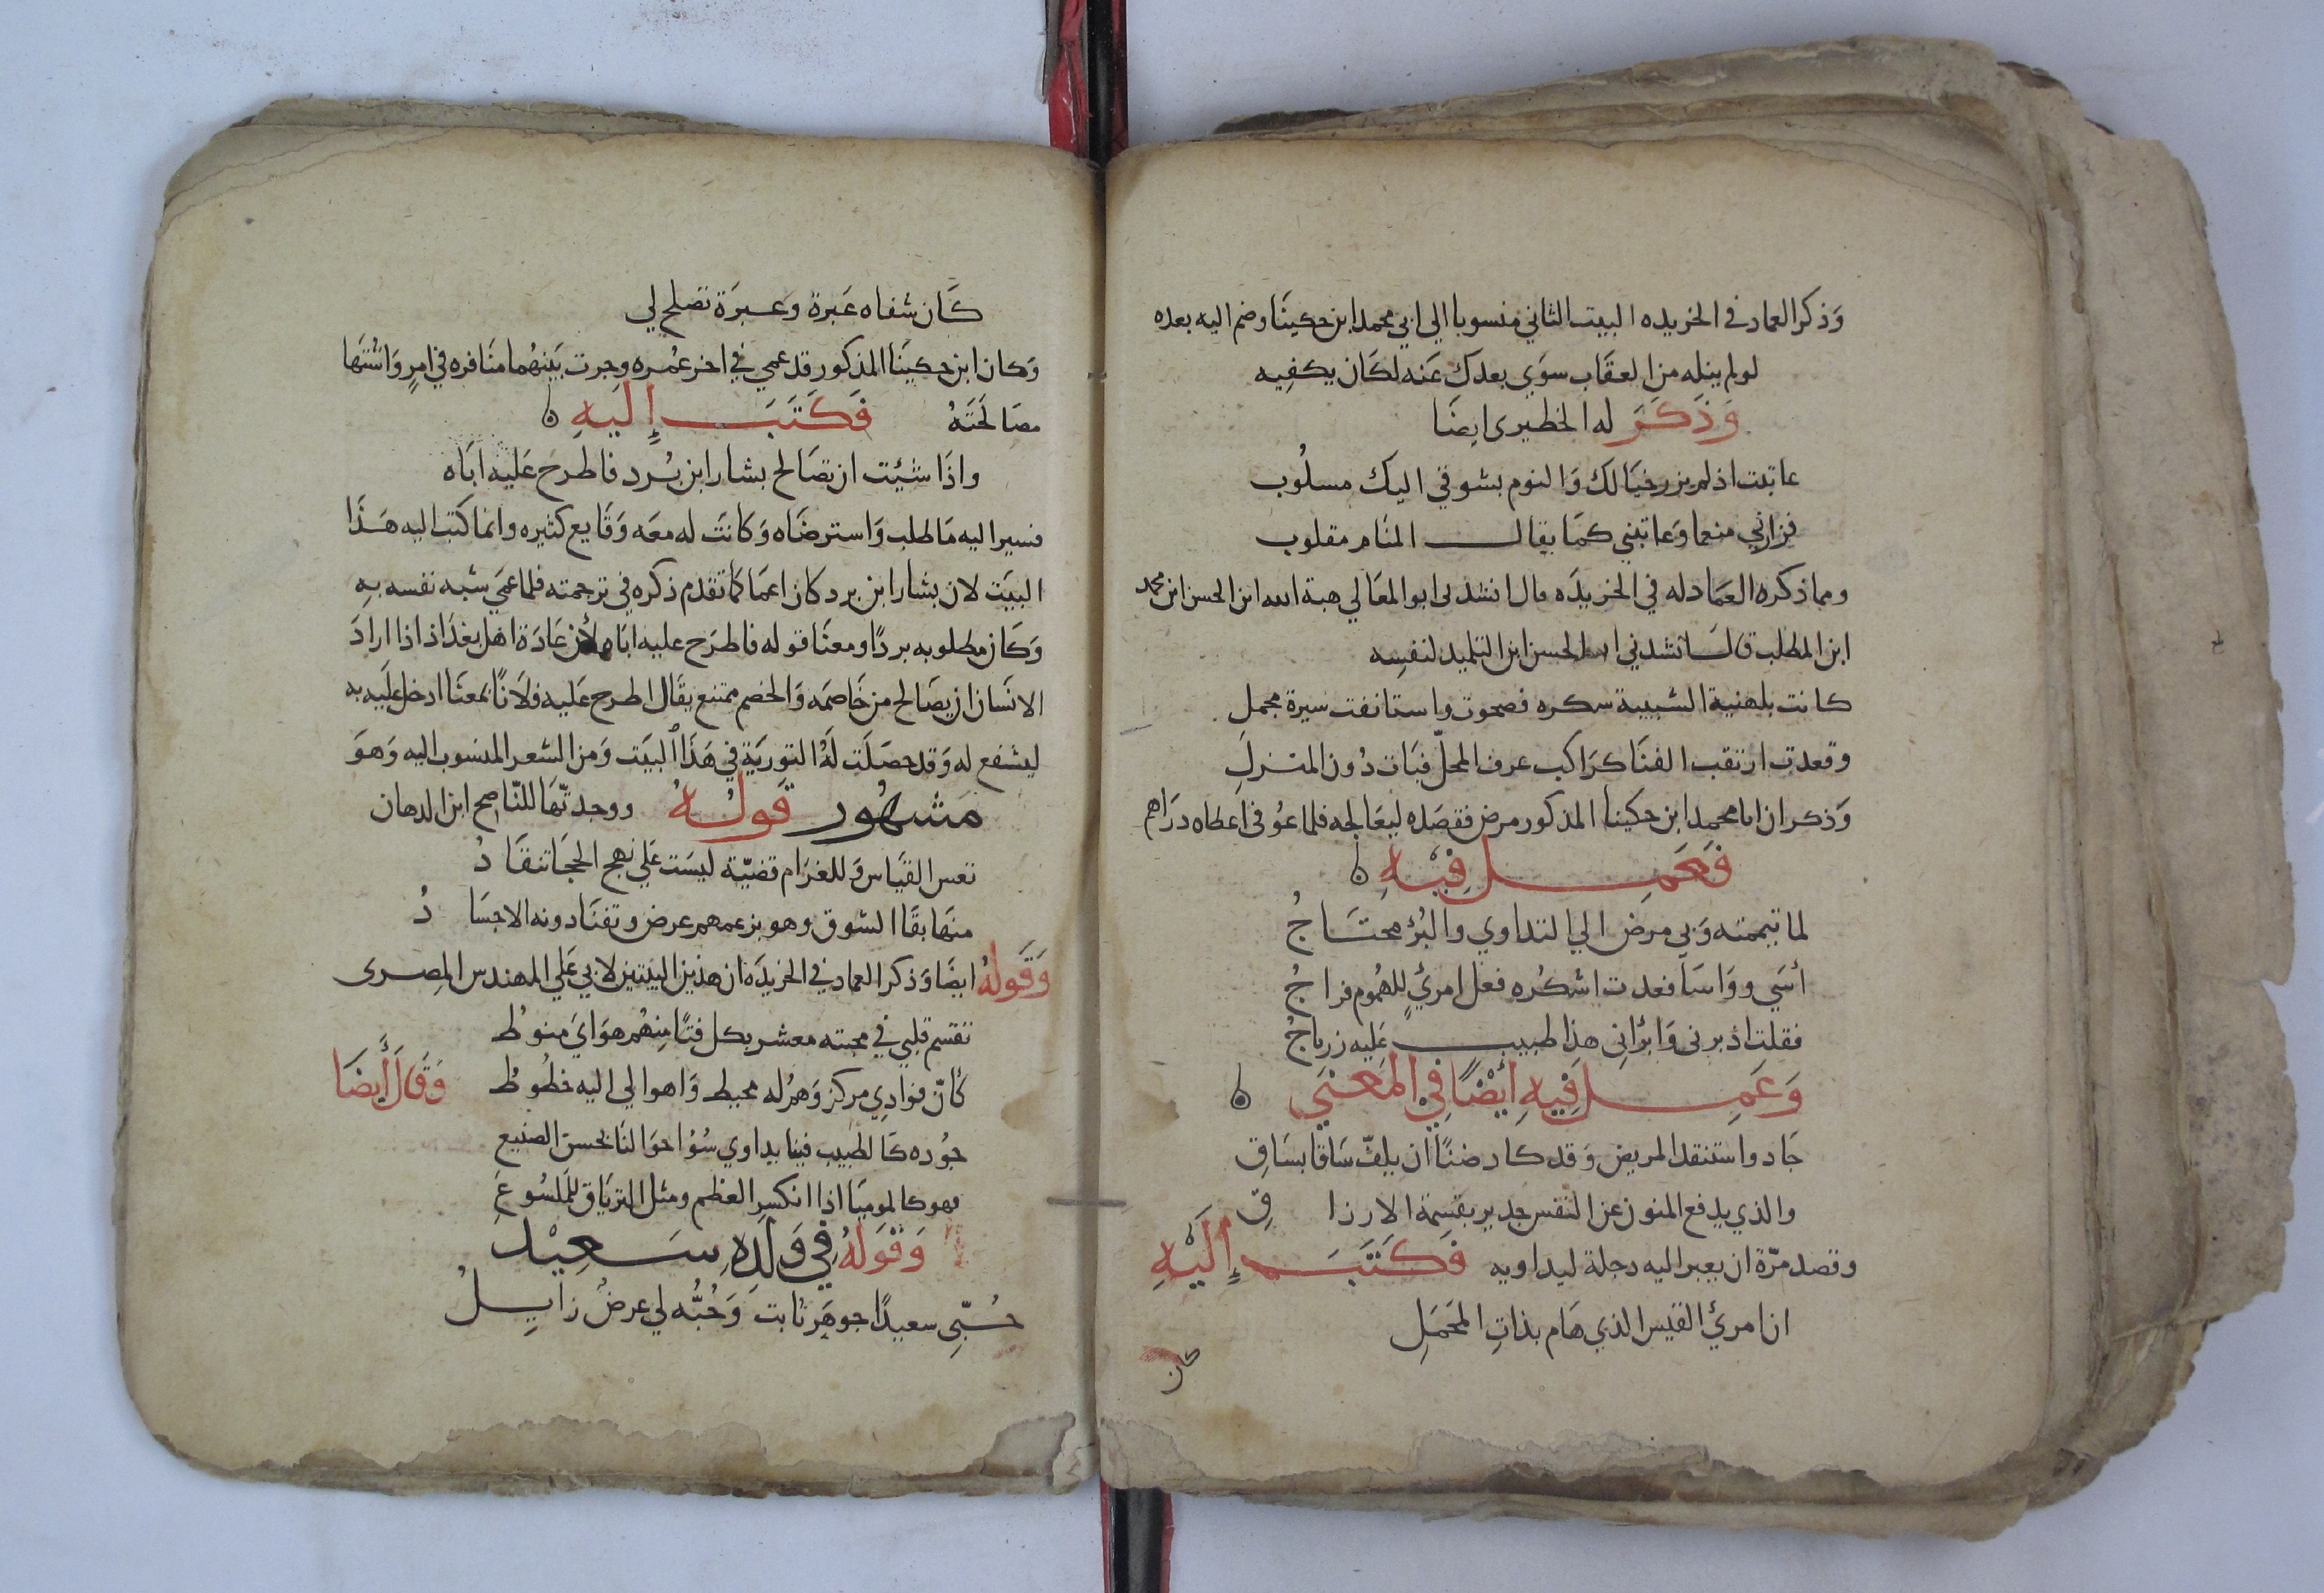 وَذكر العماد في الخريده البيت الثاني منسوبا الي ابي محمد ابن حكينَا وضم اليه بعده
لو لم ينله من العقَاب سوَي بعدك عَنه لكَان يكفِيه
وَذكَرَ له الخطيرى ايضَا
عاتبت اذ لم يزر خيَالك وَالنوم بشوقي اليك مسلُوب
فزارني منعما وَعاتبني كمَا يقال المنَام مقلوب
ومما ذكره العمَاد له في الخريدَه قال انشدنى ابو المعَالي هبة الله ابن الحسن ابن محمد
ابن المطلب قال انشدني ابو الحسن ابن التلميذ لنفسِه
كانت بلهنية الشبيبة سكره فصحوت واستانفت سيرة مجملِ
وقعدت ارتقب الفنَا كرَاكب عرف المحلّ فبَات دُون المنزلِ
وَذكر ان ابا محمد ابن حكينا المذكور مرض فقصَده ليعَالجه فلما عوُفى اعطاه درَاهم
فَعَمِل فِيْهِ
لما تيممته وَبي مرض الي التداوي والبُرؤ محتَاجُ
أسَي ووَاسَا فعدت اشكُره فعل امرئٍ للهمُوم فراجُ
فقلت اذ برنى وَابرَاني هذا طبيب عَليه زرباجُ
وَعَمِل فِيْهِ أَيْضًا فِي الْمَعْنَي
جَاد واستنقذ المريض وَقد كاد ضنًا ان يلفّ سَاقا بسَاقِ
والذي يدفع المنون عن النفس جدير بقسمة الارزاقِ
وقصد مرّة ان يعبر اليه دجلة ليداويه فَكَتَبَ إِلَيْهِ
ان امرئ القيس الذي هَام بذاتِ المحَملِ
كان
كَان شفاه عَبرة وعَبرَة تصلح لي
وَكان ابن حكينَا المذكور قد عمي في اخر عمُره وجرت بَينهُما منَافره في امرٍ وَاشتهَا
مصَالحَتَهُ فَكَتَبَ إِلَيهِ
واذَا شئِت ان تصَالح بشار ابن بُرد فاطرح عَليه ابَاه
فسير اليه مَا طلب وَاسترضَاه وَكانَت له معَه وَقايع كثيره وانما كتب اليه هَذَا
البيَت لان بشار ابن برد كان اعمَا كمَا تقدم ذكره في ترجمته فلما عمَي شبه نفسه بهِ
وَكَان مطلوبه بردًا ومعنَا قوله فاطرَح عليه ابَاه لأن عَادَة اهل بغدَاذ اذا ارادَ
الانسَان ان يصَالح من خَاصمَه وَالخصم ممتنع يقَال اطرح عَليه فلَانًا بمعنَا ادخل عَليه به
ليشفع له وَقد حصَلَت لَهُ التوريَة في هَذَا البيَت وَمن الشعر المنسوب اليه وَهوَ
مَشهُور قَولُهُ ووجدتّهَا للنّاصح ابن الدهان
تعس القيَاس فَللغرَام قضيّة ليسَت عَلي نهج الحجَا تنقَادُ
منهَا بقَا الشوق وهو بزعمهم عرض وتفنَا دونه الاجسَادُ
وَقَولهُ ايضَا وَذكر العماد في الخريدَه ان هذين البيتين لابي عَلي المهندس المِصرى
تقسم قلبي في محبته معشر بكل فتًا منِهُم هوَايَ منوطُ
كَانّ فوادي مركز وَهمُ له محيط وَاهوالي اليه خطُوطُ وَقَالَ أَيضَا
جوُده كَالطبيب فينا يداوي سُوُ احوَالنَا بحسن الصَنيع
فهو كالموميَا اذا انكسر العظم ومثل الترَيَاق للمَلسُوعَِ
وَقَوَلهُ فِي وَلَدِهِ سَعِيْد
حُبّي سعيدًا جوهَر ثابت وَحُبُّه لي عرضُ زايلُ